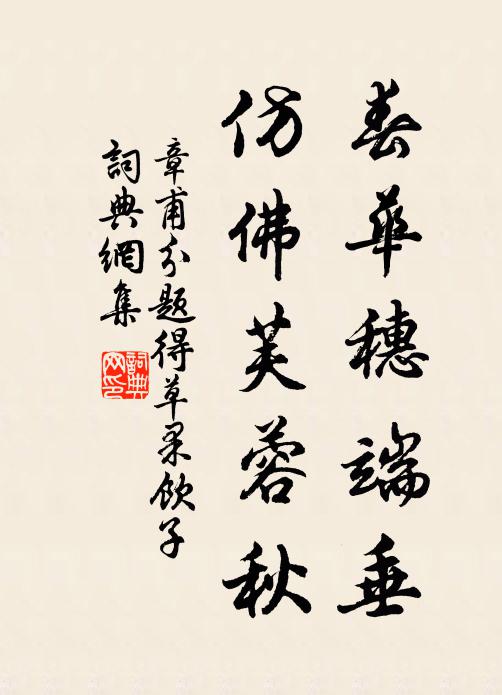 春華穗端垂
仿佛芙蓉秋
章甫分題得草果飲子
詞典網集
詞典網印